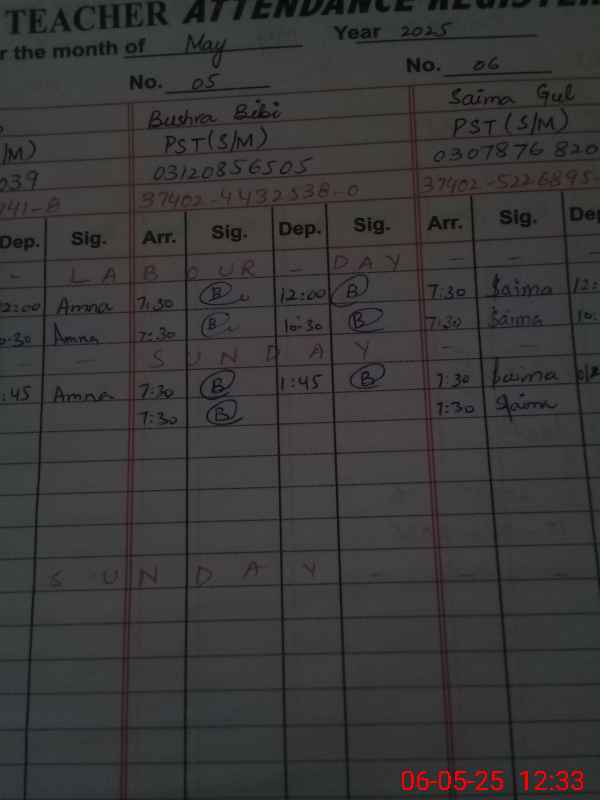 TEACHER ATTENDANCE REGISTER
r the month of May Year 2025
No. 05 No. 06
Bushra Bibi Saima Gul
/M) PST (S/M) PST (S/M)
039 03120856505 0307876820
741-8 37402-4432538-0 37402-5226895-
Dep. Sig. Arr. Sig. Dep. Sig. Arr. Sig. Dep
- LABOUR - DAY - - -
12:00 Amna 7:30 B 12:00 B 7:30 Saima 12:
0-30 Amna 7:30 B 10-30 B 7:30 Saima 10.
- - SUNDAY - - -
:45 Amna 7:30 B 1:45 B 7:30 Saima
7:30 B 7:30 Saima
SUNDAY - - -
06-05-25 12:33